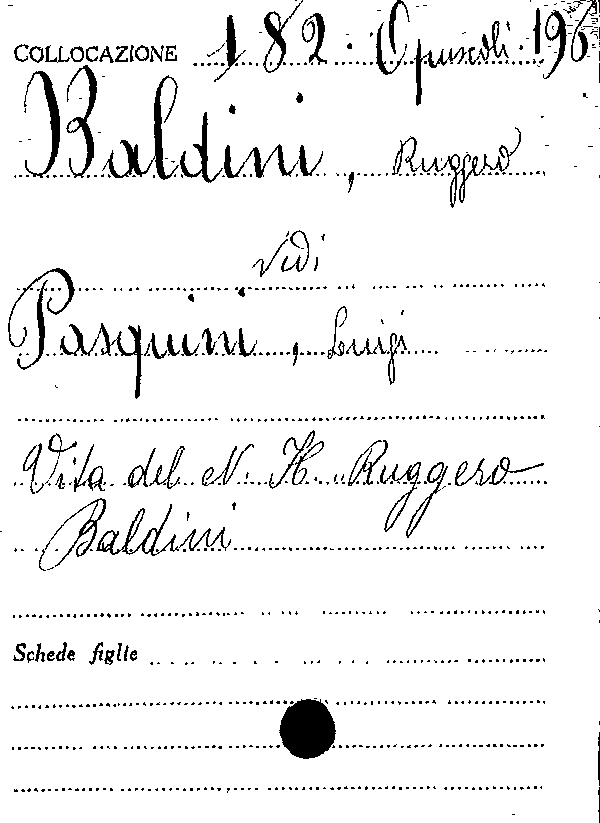 COLLOCAZIONE 182. Opuscoli. 196
Baldini, Ruggero
vidi
Pasquini, Luigi
Vita del N. H. Ruggero
Baldini
Schede figlie